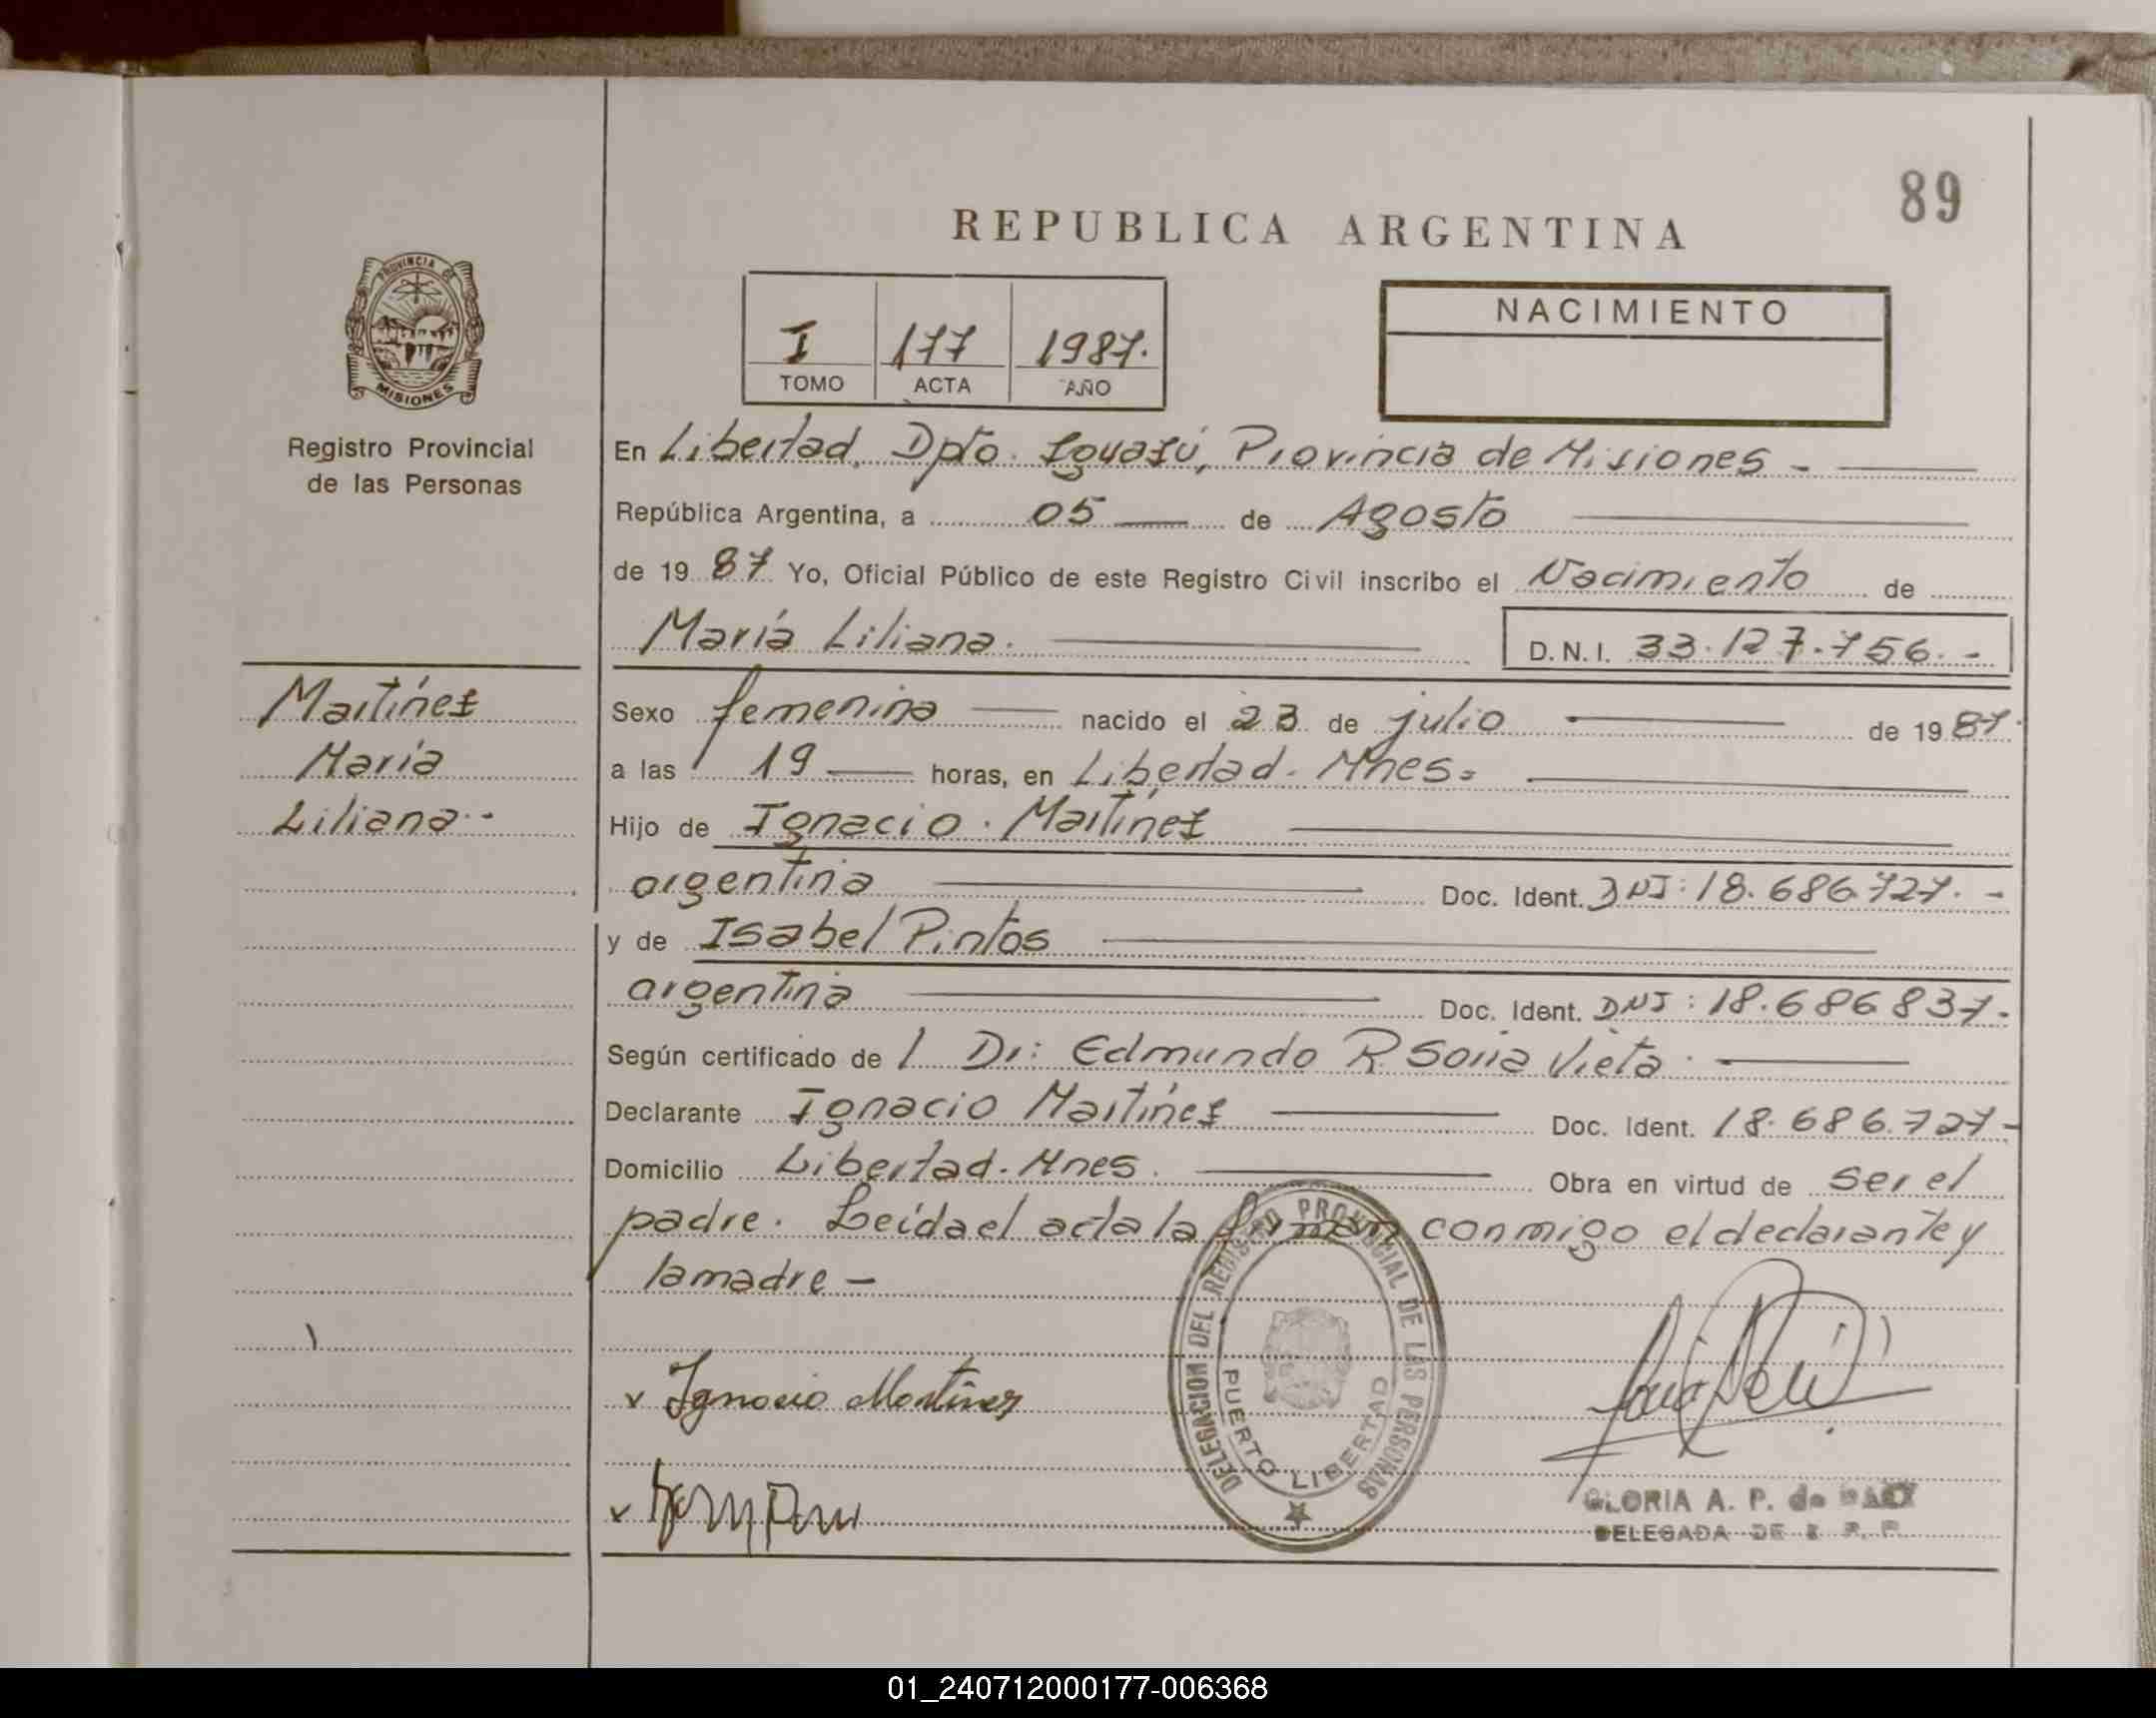 89
REPUBLICA ARGENTINA
PROVINCIA DE
MISIONES
Registro Provincial
de las Personas
I 177 1987.
TOMO ACTA AÑO
NACIMIENTO
En Libertad, Dpto. Iguazú, Provincia de Misiones -
República Argentina, a 05 de Agosto
de 1987 Yo, Oficial Público de este Registro Civil inscribo el Nacimiento de
María Liliana.
D.N.I. 33.127.756.-
Martínez
María
Liliana.-
Sexo femenino nacido el 23 de julio de 1987.
a las 19 horas, en Libertad. Mnes.
Hijo de Ignacio. Martínez
argentina Doc. Ident. DNI: 18.686.727.-
y de Isabel Pintos
argentina Doc. Ident. DNI: 18.686837.
Según certificado de l Dr: Edmundo R. Soria Vieta.
Declarante Ignacio Martínez Doc. Ident. 18.686.727-
Domicilio Libertad. Mnes. Obra en virtud de ser el
padre. Leída el acta la firman conmigo el declarante y
la madre -
DELEGACION DEL REGISTRO PROVINCIAL DE LAS PERSONAS
PUERTO LIBERTAD
x Ignacio Martinez
x
GLORIA A. P. de
DELEGADA DE
01_240712000177-006368